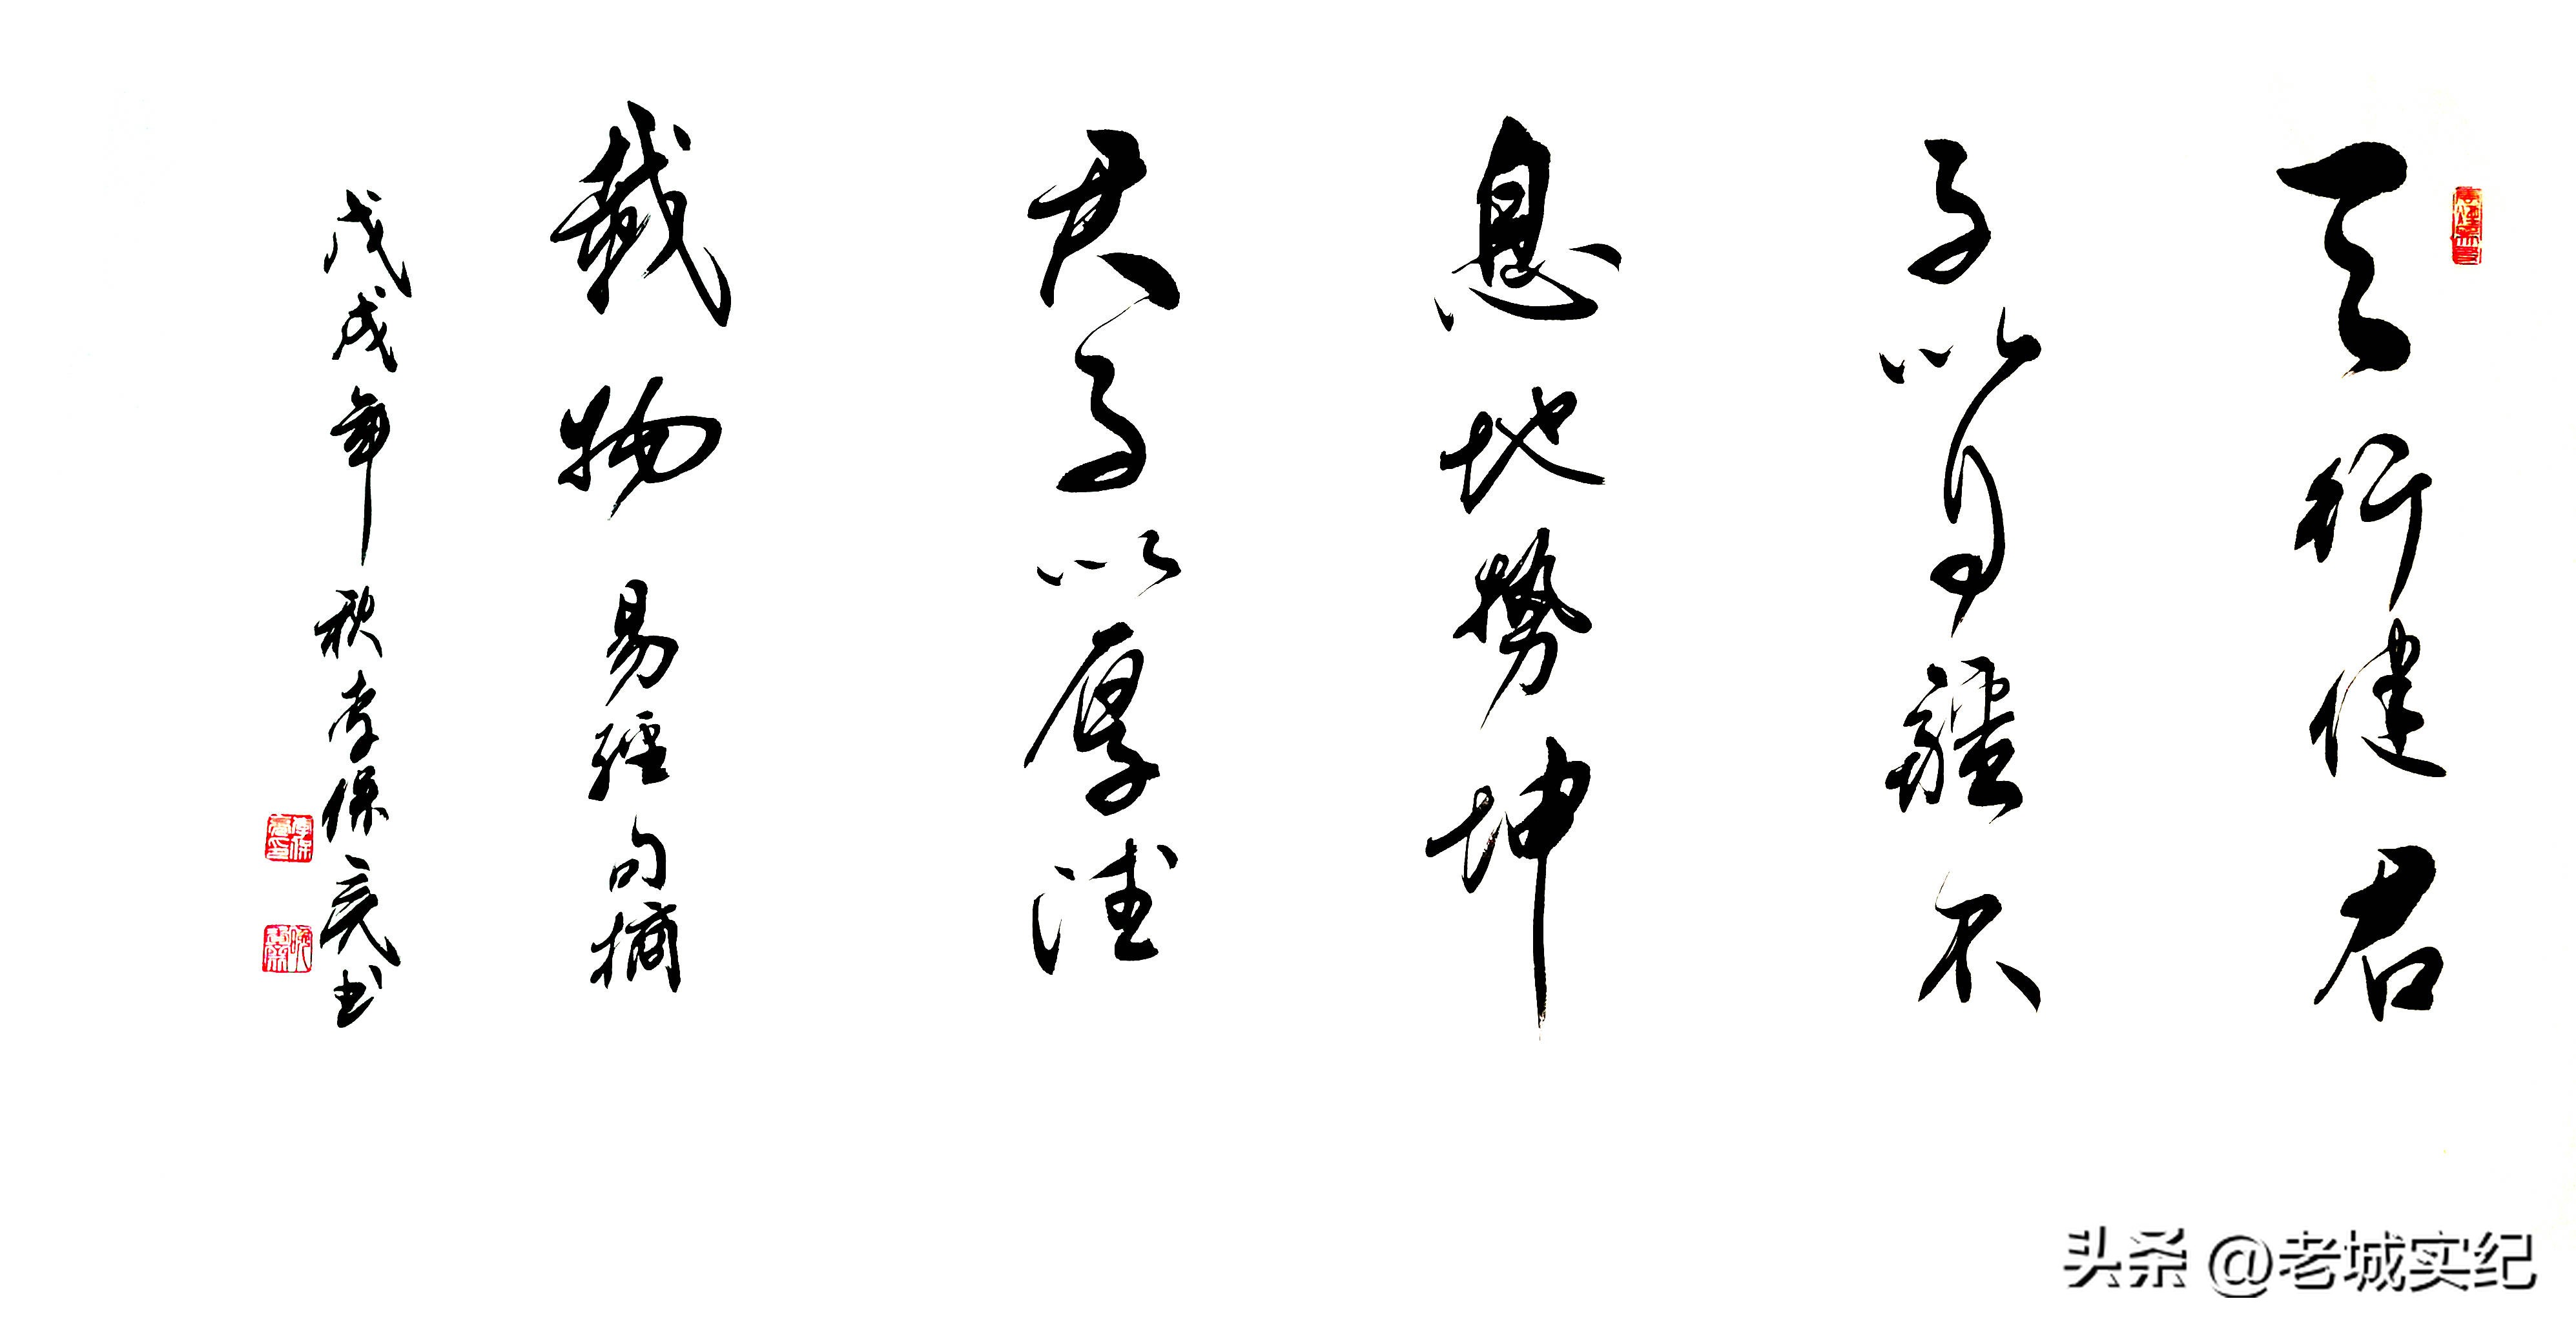 天行健君
子以自彊不
息地勢坤
君子以厚德
載物 易經句摘
戊戌年秋李保亮书
李保亮印
头条 @老城实纪